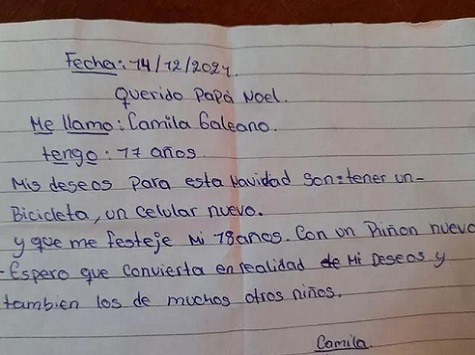 Fecha: 14/12/2024.
Querido Papá Noel.
Me llamo: Camila Galeano.
tengo: 17 años.
Mis deseos para esta Navidad son: tener un-
Bicicleta, un celular nuevo.
y que me festeje mi 18 años. Con un Piñon nuevo
-Espero que convierta en realidad de Mi Deseos y
tambien los de muchos otros niños.
Camila.